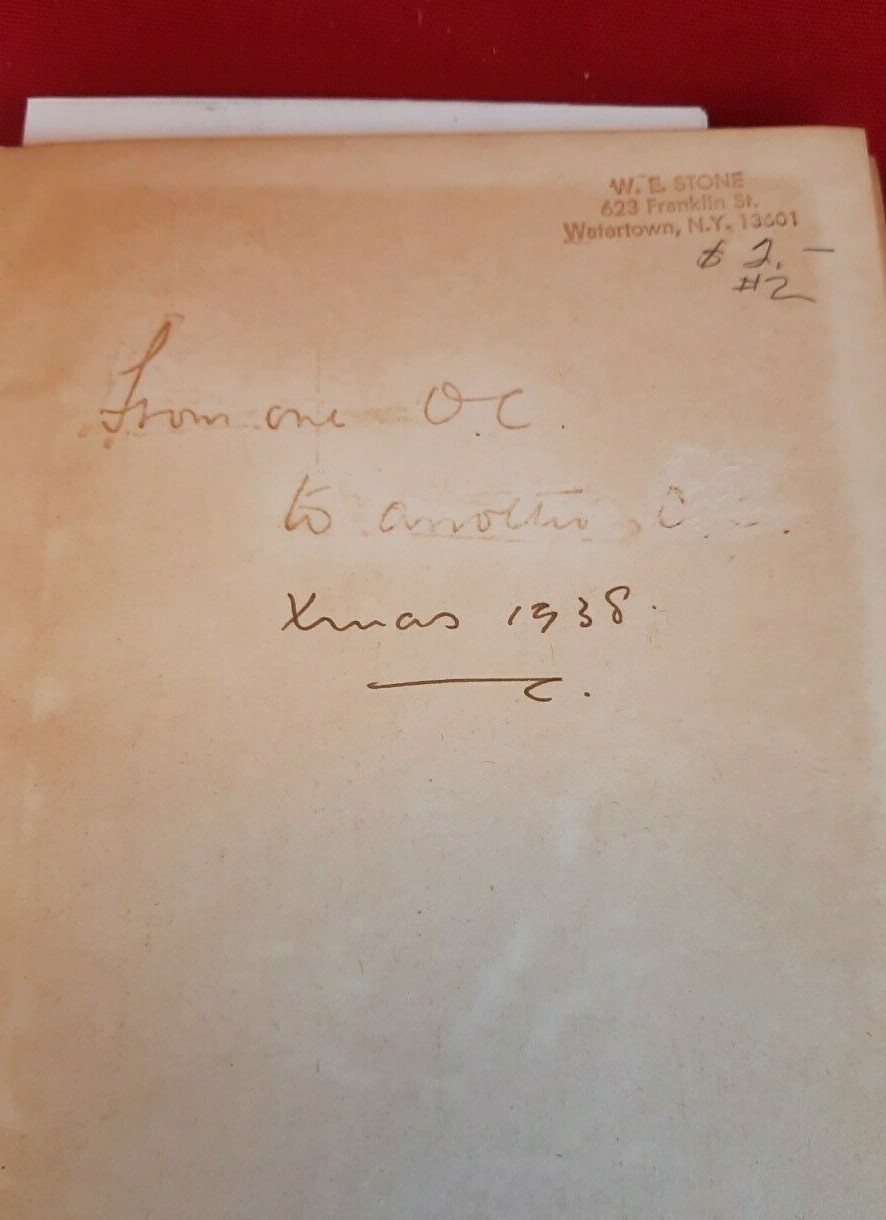 W. E. STONE
623 Franklin St.
Watertown, N.Y. 13601
$ 2. —
#2
From one O.C.
to another
Xmas 1938.
C.